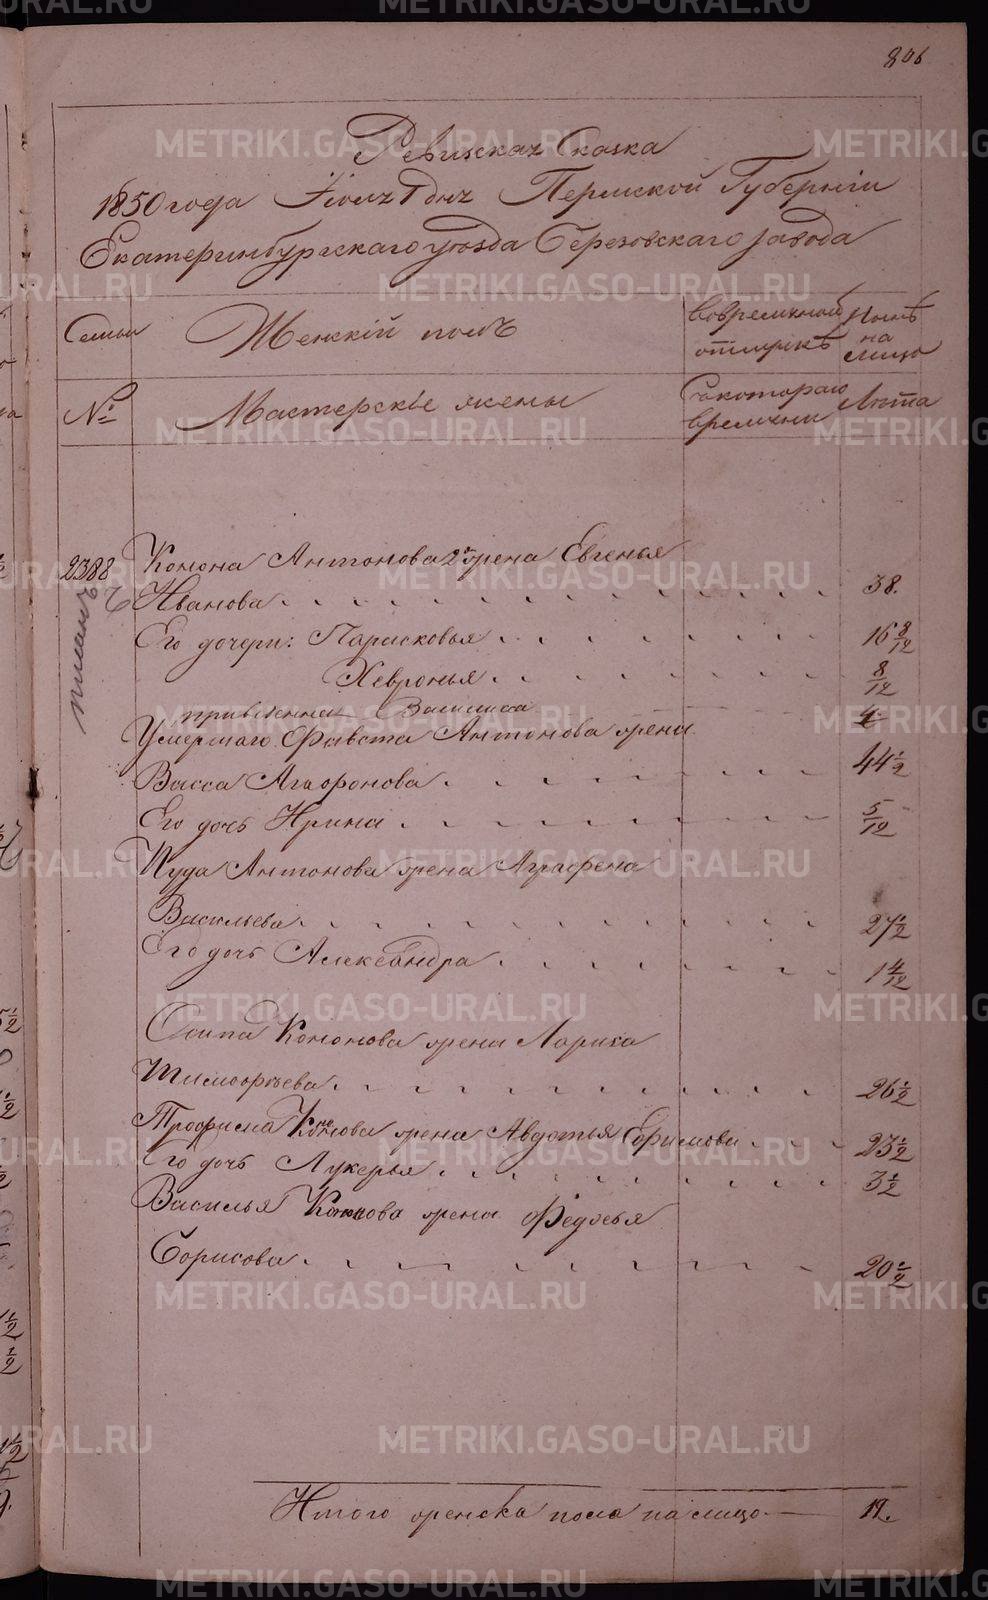 806
Ревизская Сказка
1850 года Iюня 1 дня Пермской Губернiи
Екатеринбургскаго уѣзда Березовскаго завода
Семьи
Женскiй полъ
Вовременной отлучкѣ
Нынѣ на лицо
№
Мастерскiе жены
Съ котораго времени
Лѣта
2388
Конона Антонова 2я жена Евгенья
Иванова 38.
Его дочери: Парасковья 16 8/12
Хевронья 8/12
привѣденна Васлиса 4
Умершаго Фавста Антонова жена
Васса Агафонова 44 1/2
Его дочь Ирина 5/12
Иуда Антонова жена Аграфена
Васильева 27 1/2
Его дочь Александра 1 4/12
Осипа Кононова жена Лариса
Тимофѣева 26 1/2
Трофима Кононова жена Авдотья Ефимова 23 1/2
Его дочь Лукерья 3 1/2
Василья Кононова жена Федосья
Борисова 20 1/2
Итого женска пола налицо 12.
METRIKI.GASO-URAL.RU